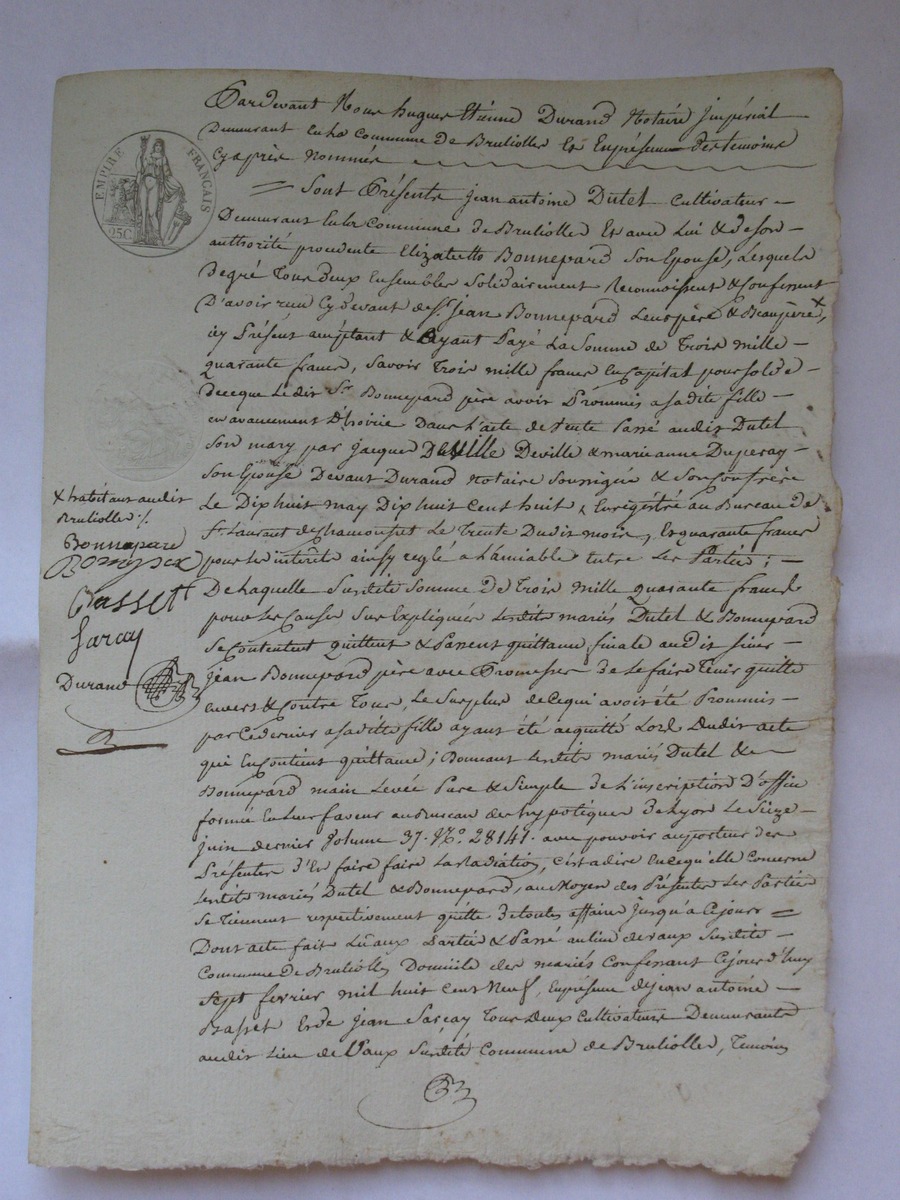 Pardevant Nous hugues Etienne Durand Notaire Impérial
Demeurant en la Commune de Brulliolles Et En présence des temoins
Cy après nommés
EMPIRE FRANÇAIS
25C
= Sont Présents jean antoine Dutel Cultivateur -
Demeurant en la Commune de Brulliolles Et avec Lui & de son -
authorité procedente Elizabeth Bonnepard Son Epouse, Lesquels
de gré Tous deux Ensembles Solidairement Reconnoissent & Confessent
D'avoir reçu Cy devant de Sr. jean Bonnepard Leur père & Beaupère +,
icy Présent acceptant & ayant Payé La Somme de Trois mille -
quarante francs, Savoir Trois mille francs En Capital pour solde -
de ce que Le dit Sr. Bonnepard père avoit Prommis a sa dite fille -
en avancement D'hoirie Dans L'acte de vente Passé audit Dutel
son mary par jacques Deville & marie anne Duperay -
Son Epouse Devant Durand Notaire Soussigné & Son Confrère
Le Dix huit may Dix huit Cent huit, Enregistré au Bureau de
St. Laurent de Chamousset Le Trente Dudit mois, Et quarante francs
pour les intérêts ainsy reglé a L'amiable Entre Les Parties; -
De Laquelle Susdite Somme de Trois mille quarante francs
pour Les Causes Sus Expliquées Lesdits mariés Dutel & Bonnepard
Se Contentent quittent & Passent quittance finale audit Sieur -
jean Bonnepard père avec Promesses de Le faire Tenir quitte
envers & Contre Tous, Le Surplus de Ce qui avoit été Prommis -
par Ce dernier a sa dite fille ayant été acquitté Lors Dudit acte
qui En Contient quittance; Donnant Lesdits mariés Dutel & -
Bonnepard main Levée Pure & Simple de L'inscription D'office
formée En Leur faveur au Bureau des hypotèques de Lyon Le Seize -
juin dernier Volume 37. No. 28141. avec pouvoir au porteur des
Présentes d'En faire faire La Radiation, C'est a dire En Ce qu'elle Concerne
Lesdits mariés Dutel & Bonnepard, au Moyen des Présentes Les Parties
Se Tiennent respectivement quitte de toutes affaires jusqu'a Ce jour =
Dont acte fait Lu aux Parties & Passé au lieu de vaux Susdite -
Commune de Brulliolles Domicile des mariés Confessant Ce jourd'huy
Sept fevrier mil huit Cent Neuf, En présence de jean antoine -
Basset Et de jean Sarcay Tous Deux Cultivateurs Demeurants
audit Lieu de Vaux Susdite Commune de Brulliolles, Temoins
+ habitant audit
Brulliolles ./.
Bonnepard
Basset
Sarcay
Durand